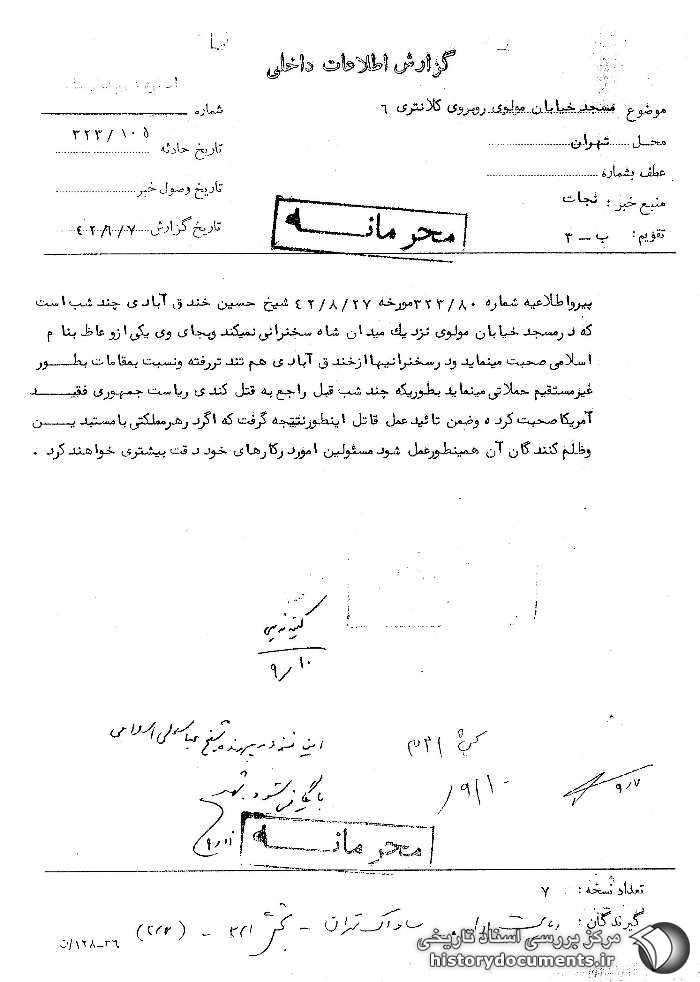 گزارش اطلاعات داخلی
موضوع مسجد خیابان مولوی روبروی کلانتری ۶
محل تهران
عطف بشماره
منبع خبر : نجات
تقویم : ب – ۳
شماره
۳۲۳/۱۰۵
تاریخ حادثه
تاریخ وصول خبر
تاریخ گزارش
محرمانه
پیرو اطلاعیه شماره ۳۲۳/۸۰ مورخه ۴۲/۸/۲۷ شیخ حسین خندق آبادی چند شب است
که در مسجد خیابان مولوی نزدیك میدان شاه سخنرانی نمیکند وبجای وی یکی از وعاظ بنام
اسلامی صحبت مینماید ودرسخنرانیها ازخندق آبادی هم تند تررفته ونسبت بمقامات بطور
غیرمستقیم حملاتی مینماید بطوریکه چند شب قبل راجع به قتل کندی ریاست جمهوری فقید
آمریکا صحبت کرده وضمن تائید عمل قاتل اینطورنتیجه گرفت که اگر در هرمملکتی با مستبدین
وظلم کنندگان آن همینطورعمل شود مسئولین امور در کارهای خود دقت بیشتری خواهند کرد .
۹/۱۰
این نسخه در پرونده شیخ عباسعلی اسلامی
بایگانی شود
۹/۱۰
۹/۷
محرمانه
تعداد نسخه : ۷
گیرندگان : ساواک تهران – بخش ۳۲۱ –
۱۲۸-۳۶/ت
مرکز بررسی اسناد تاریخی
historydocuments.ir